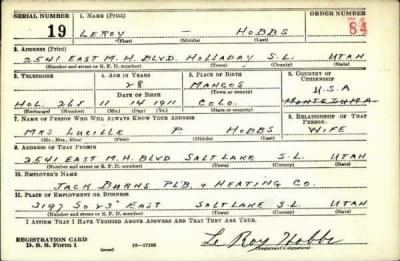 SERIAL NUMBER 1. NAME (Print) ORDER NUMBER
19 LEROY — HOBBS 84
(First) (Middle) (Last)
2. ADDRESS (Print)
2541 EAST M.H. BLVD. HOLLADAY S.L. UTAH
(Number and street or R. F. D. number) (Town) (County) (State)
3. TELEPHONE 4. AGE IN YEARS 5. PLACE OF BIRTH 6. COUNTRY OF CITIZENSHIP
28 MANCOS U.S.A
DATE OF BIRTH (Town or county)
HOL. 265 11 14 1911 COLO. MONTEZUMA
(Exchange) (Number) (Mo.) (Day) (Yr.) (State or country)
7. NAME OF PERSON WHO WILL ALWAYS KNOW YOUR ADDRESS 8. RELATIONSHIP OF THAT PERSON
MRS LUCILLE P HOBBS WIFE
(Mr., Mrs., Miss) (First) (Middle) (Last)
9. ADDRESS OF THAT PERSON
2541 EAST M.H. BLVD SALT LAKE S.L. UTAH
(Number and street or R. F. D. number) (Town) (County) (State)
10. EMPLOYER'S NAME
JACK BARNS PL'B. & HEATING CO.
11. PLACE OF EMPLOYMENT OR BUSINESS
3197 SO 23 EAST SALT LAKE S.L. UTAH
(Number and street or R. F. D. number) (Town) (County) (State)
I AFFIRM THAT I HAVE VERIFIED ABOVE ANSWERS AND THAT THEY ARE TRUE.
REGISTRATION CARD
D. S. S. FORM 1 (over) 16—17105
Le Roy Hobbs
(Registrant's signature)